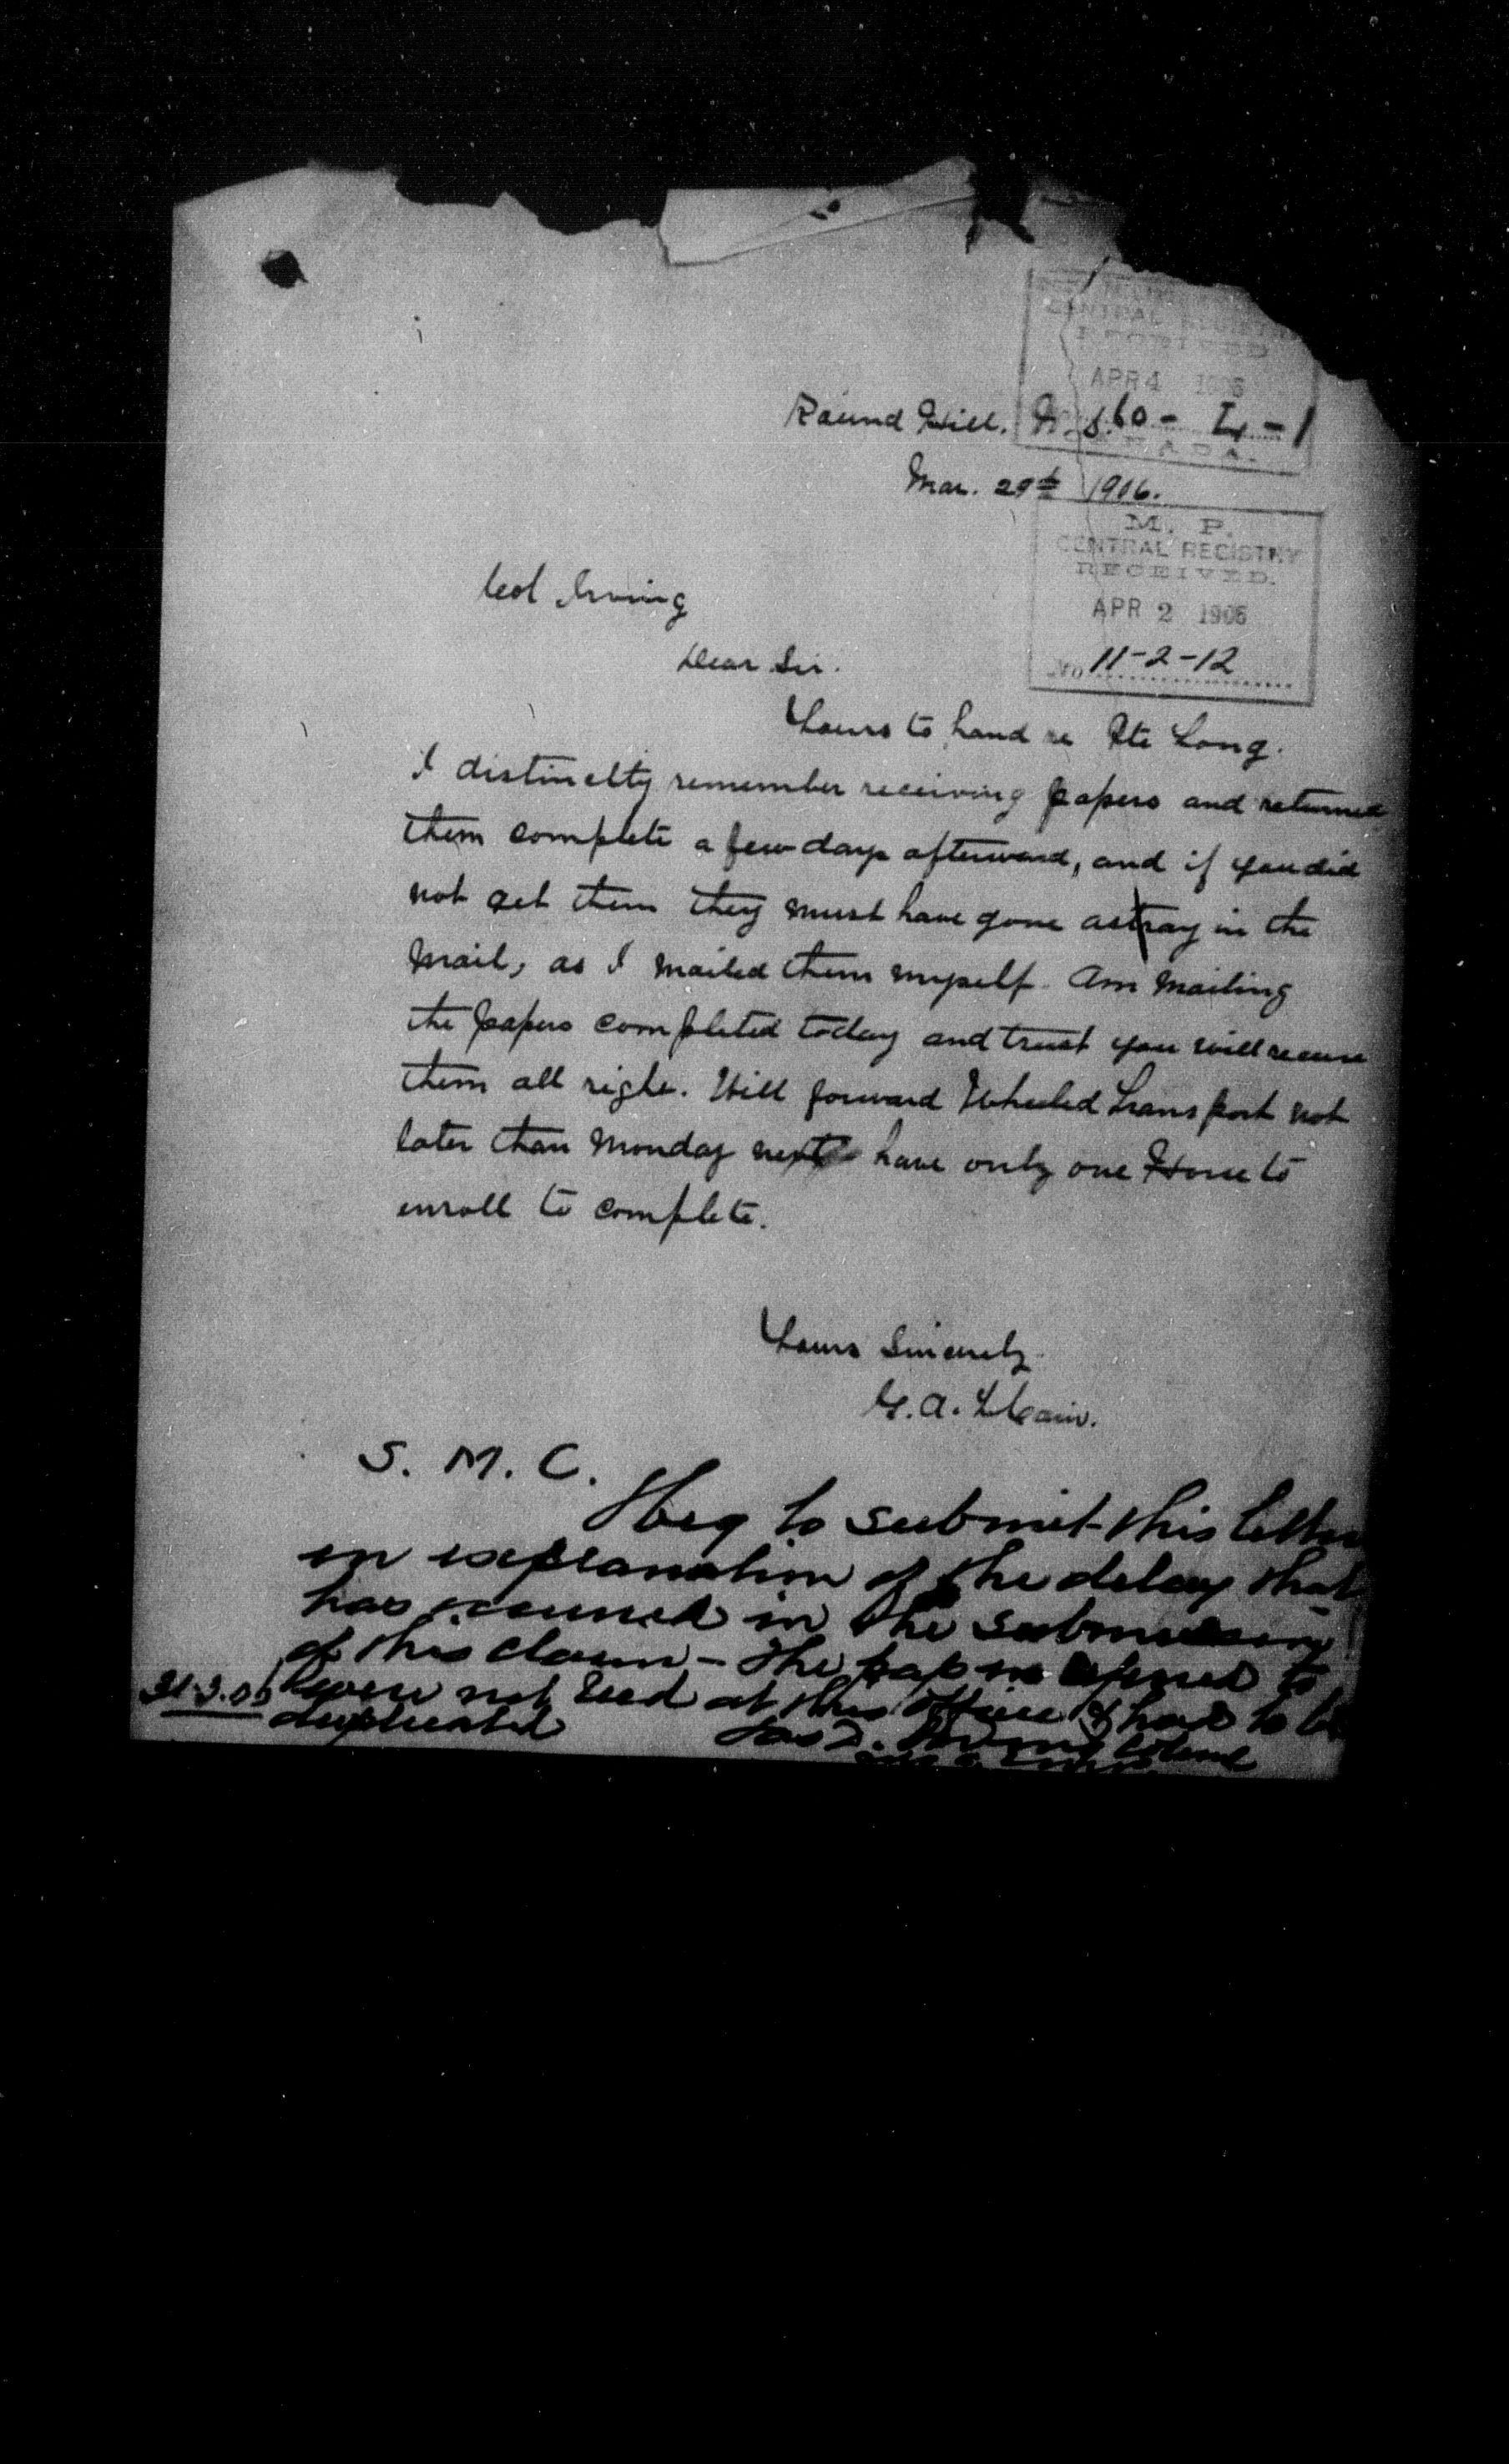 CENTRAL REGISTRY
RECEIVED
APR 4 1906
Round Hill. N.S. 60 - 4 - 1
Mar. 29th 1906.
M. P.
CENTRAL REGISTRY
RECEIVED.
APR 2 1906
No 11-2-12
Col Irving
Dear Sir.
Yours to hand re Pte Long.
I distinctly remember receiving papers and returned
them complete a few days afterward, and if you did
not get them they must have gone astray in the
mail, as I mailed them myself. Am mailing
the papers completed today and trust you will receive
them all right. Will forward Wheeled Transport not
later than Monday next have only one Horse to
enroll to complete.
Yours Sincerely
G. A.
S. M. C.
I beg to submit this letter
in explanation of the delay that
has occurred in the submission
of this claim - The papers referred to
31.3.06 were not recd at this office & had to be
duplicated
Jas D. Irving Colonel